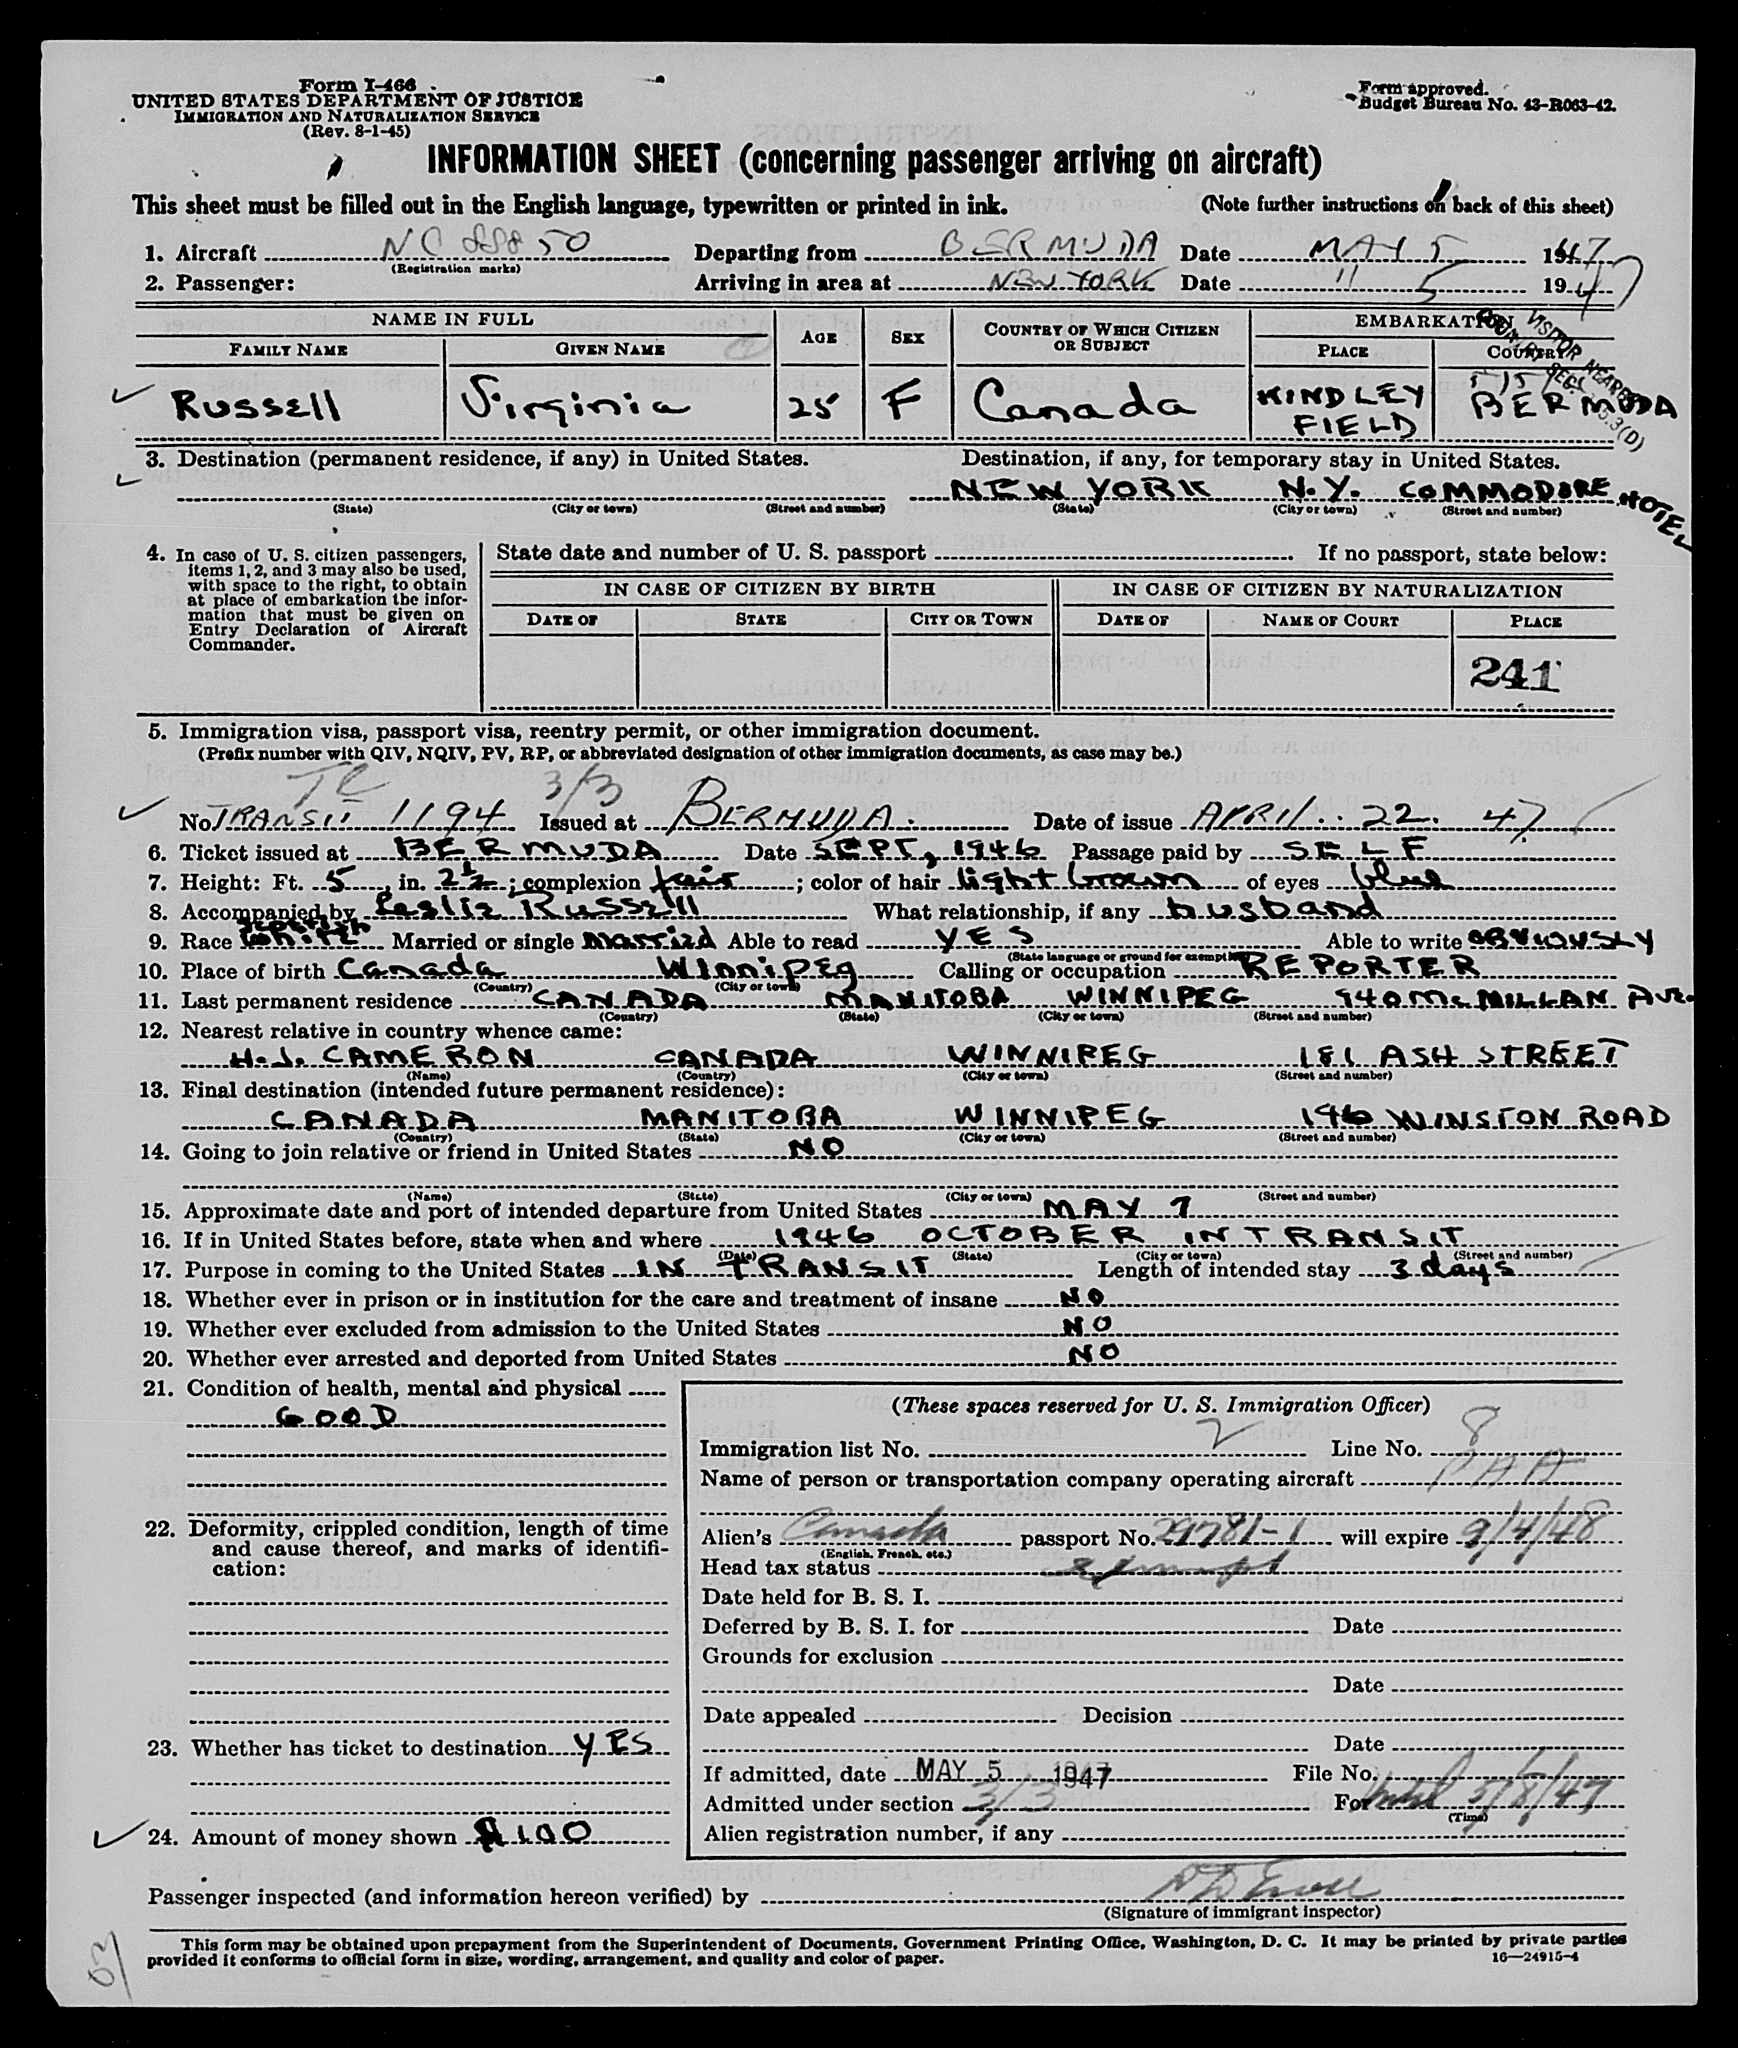 Form I-466
UNITED STATES DEPARTMENT OF JUSTICE
IMMIGRATION AND NATURALIZATION SERVICE
(Rev. 8-1-45)
Form approved.
Budget Bureau No. 43-R063-42.
INFORMATION SHEET (concerning passenger arriving on aircraft)
This sheet must be filled out in the English language, typewritten or printed in ink. (Note further instructions on back of this sheet)
1. Aircraft NC 88850 Departing from BERMUDA Date MAY 5 1947
(Registration marks)
2. Passenger: Arriving in area at NEW YORK Date " 5 1947
NAME IN FULL AGE SEX COUNTRY OF WHICH CITIZEN OR SUBJECT EMBARKATION
FAMILY NAME GIVEN NAME PLACE COUNTRY
VISITOR NEARBY
COUNTRY REG. 175.3(D)
Russell Virginia 25 F Canada KINDLEY FIELD BERMUDA
3. Destination (permanent residence, if any) in United States. Destination, if any, for temporary stay in United States.
NEW YORK N.Y. COMMODORE HOTEL
(State) (City or town) (Street and number) (State) (City or town) (Street and number)
4. In case of U. S. citizen passengers, items 1, 2, and 3 may also be used, with space to the right, to obtain at place of embarkation the information that must be given on Entry Declaration of Aircraft Commander.
State date and number of U. S. passport If no passport, state below:
IN CASE OF CITIZEN BY BIRTH IN CASE OF CITIZEN BY NATURALIZATION
DATE OF STATE CITY OR TOWN DATE OF NAME OF COURT PLACE
241
5. Immigration visa, passport visa, reentry permit, or other immigration document.
(Prefix number with QIV, NQIV, PV, RP, or abbreviated designation of other immigration documents, as case may be.)
TC 3/3
No. TRANSIT 1194 Issued at BERMUDA. Date of issue APRIL 22. 47.
6. Ticket issued at BERMUDA Date SEPT, 1946 Passage paid by SELF
7. Height: Ft. 5, in. 2½; complexion fair; color of hair light brown of eyes blue
8. Accompanied by Leslie Russell What relationship, if any husband
9. Race Scottish white Married or single Married Able to read YES Able to write OBVIOUSLY
(State language or ground for exemption)
10. Place of birth Canada Winnipeg Calling or occupation REPORTER
(Country) (City or town)
11. Last permanent residence CANADA MANITOBA WINNIPEG 940 McMILLAN Ave.
(Country) (State) (City or town) (Street and number)
12. Nearest relative in country whence came:
H.J. CAMERON CANADA WINNIPEG 181 ASH STREET
(Name) (Country) (City or town) (Street and number)
13. Final destination (intended future permanent residence):
CANADA MANITOBA WINNIPEG 196 WINSTON ROAD
(Country) (State) (City or town) (Street and number)
14. Going to join relative or friend in United States NO
(Name) (State) (City or town) (Street and number)
15. Approximate date and port of intended departure from United States MAY 7
16. If in United States before, state when and where 1946 OCTOBER IN TRANSIT
(Date) (State) (City or town) (Street and number)
17. Purpose in coming to the United States IN TRANSIT Length of intended stay 3 days
18. Whether ever in prison or in institution for the care and treatment of insane NO
19. Whether ever excluded from admission to the United States NO
20. Whether ever arrested and deported from United States NO
21. Condition of health, mental and physical
GOOD
22. Deformity, crippled condition, length of time and cause thereof, and marks of identification:
23. Whether has ticket to destination YES
24. Amount of money shown $100
(These spaces reserved for U. S. Immigration Officer)
Immigration list No. 2 Line No. 8
Name of person or transportation company operating aircraft PAA
Alien's Canada passport No. 29781-1 will expire 9/4/48
(English, French, etc.)
Head tax status exempt
Date held for B. S. I.
Deferred by B. S. I. for Date
Grounds for exclusion
Date
Date appealed Decision
Date
If admitted, date MAY 5 1947 File No.
Admitted under section 3/3 For until 5/8/47
(Time)
Alien registration number, if any
Passenger inspected (and information hereon verified) by
(Signature of immigrant inspector)
This form may be obtained upon prepayment from the Superintendent of Documents, Government Printing Office, Washington, D. C. It may be printed by private parties
provided it conforms to official form in size, wording, arrangement, and quality and color of paper. 16—24915-4